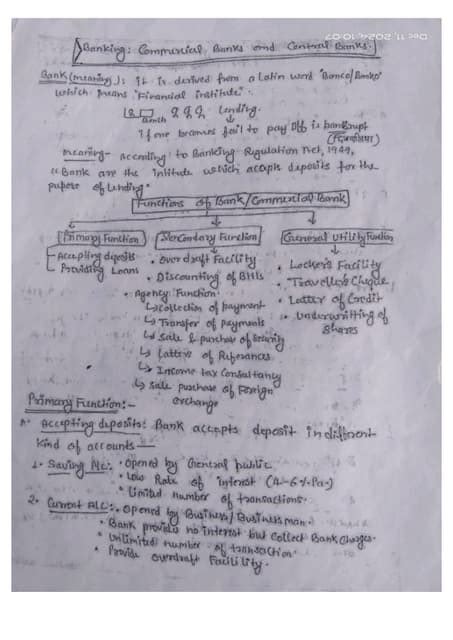 Dec 11, 2024, 10:07
Banking: Commercial Banks and Central Banks.
Bank (meaning): it is derived from a Latin word "Banco/
which means "Financial institute".
Bench Lending.
if one fail to pay off is bankrupt
meaning- According to Banking Regulation Act, 1949,
"Bank are the intitute which accepts deposits for the
pupose of Lending"
Functions of Bank/Commercial Bank
Primary Function
Accepting deposits
Providing Loans
Secondary Function
• Overdraft Facility
• Discounting of Bills
• Agency Function
↳ Collection of payment
↳ Transfer of payments
↳ Sale & purchase of security
↳ Latters of References
↳ Income tax Consultancy
↳ Sale purchase of Foreign
exchange
General Utility Function
• Lockers Facility
• Traveller's Cheque
• Latter of Credit
• Underwritting of
Shares
Primary Function:-
Accepting deposits: Bank accepts deposit in different
Kind of accounts—
1. Saving A/c: • Opened by General public
• Low Rate of interest (4-6% Pa.)
• Limited number of transactions.
2. Current A/c:. Opened by Business/Businessman.
• Bank provides no interest but Collect Bank Charges.
• Unlimited number of transaction
• Provide overdraft Facility.